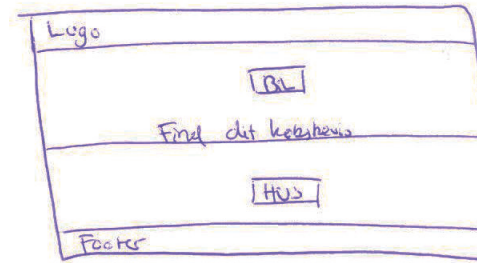 Logo
BIL
Find dit købsbevis
HUS
Footer